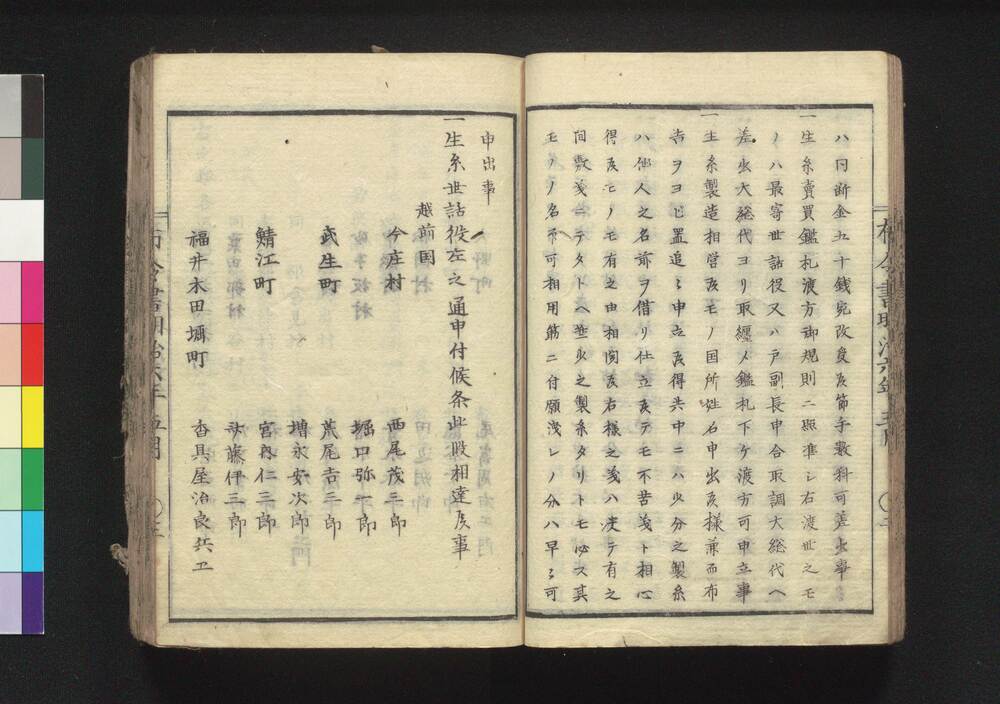 ハ同断金五十銭宛改度候節手数料可差出事
一生糸賣買鑑札渡方御規則ニ照準シ右渡世之モ
ノハ最寄世話役又ハ戸副長申合取調大総代ヘ
差出大総代ヨリ取纏メ鑑札下ケ渡方可申立事
一生糸製造相営候モノ国所姓名申出候様兼而布
告ヲヨヒ置追々申立候得共中ニハ少分之製糸
ハ他人之名前ヲ借リ仕立候テモ不苦義ト相心
得候モノモ有之由相聞候右様之義ハ決テ有之
間敷義ニテタトヘ些少之製糸タリトモ必ス其
モノノ名印可相用筋ニ付願洩レノ分ハ早々可
申出事
一生糸世話役左之通申付候条此段相達候事
越前国
今庄村 西尾茂平郎
堀口弥一郎
武生町 荒尾吉三郎
増永安次郎
鯖江町 宮内仁三郎
斎藤伊三郎
福井木田堀町 香具屋治良兵卫
布令書明治六年 五月
布令書明治六年 五月